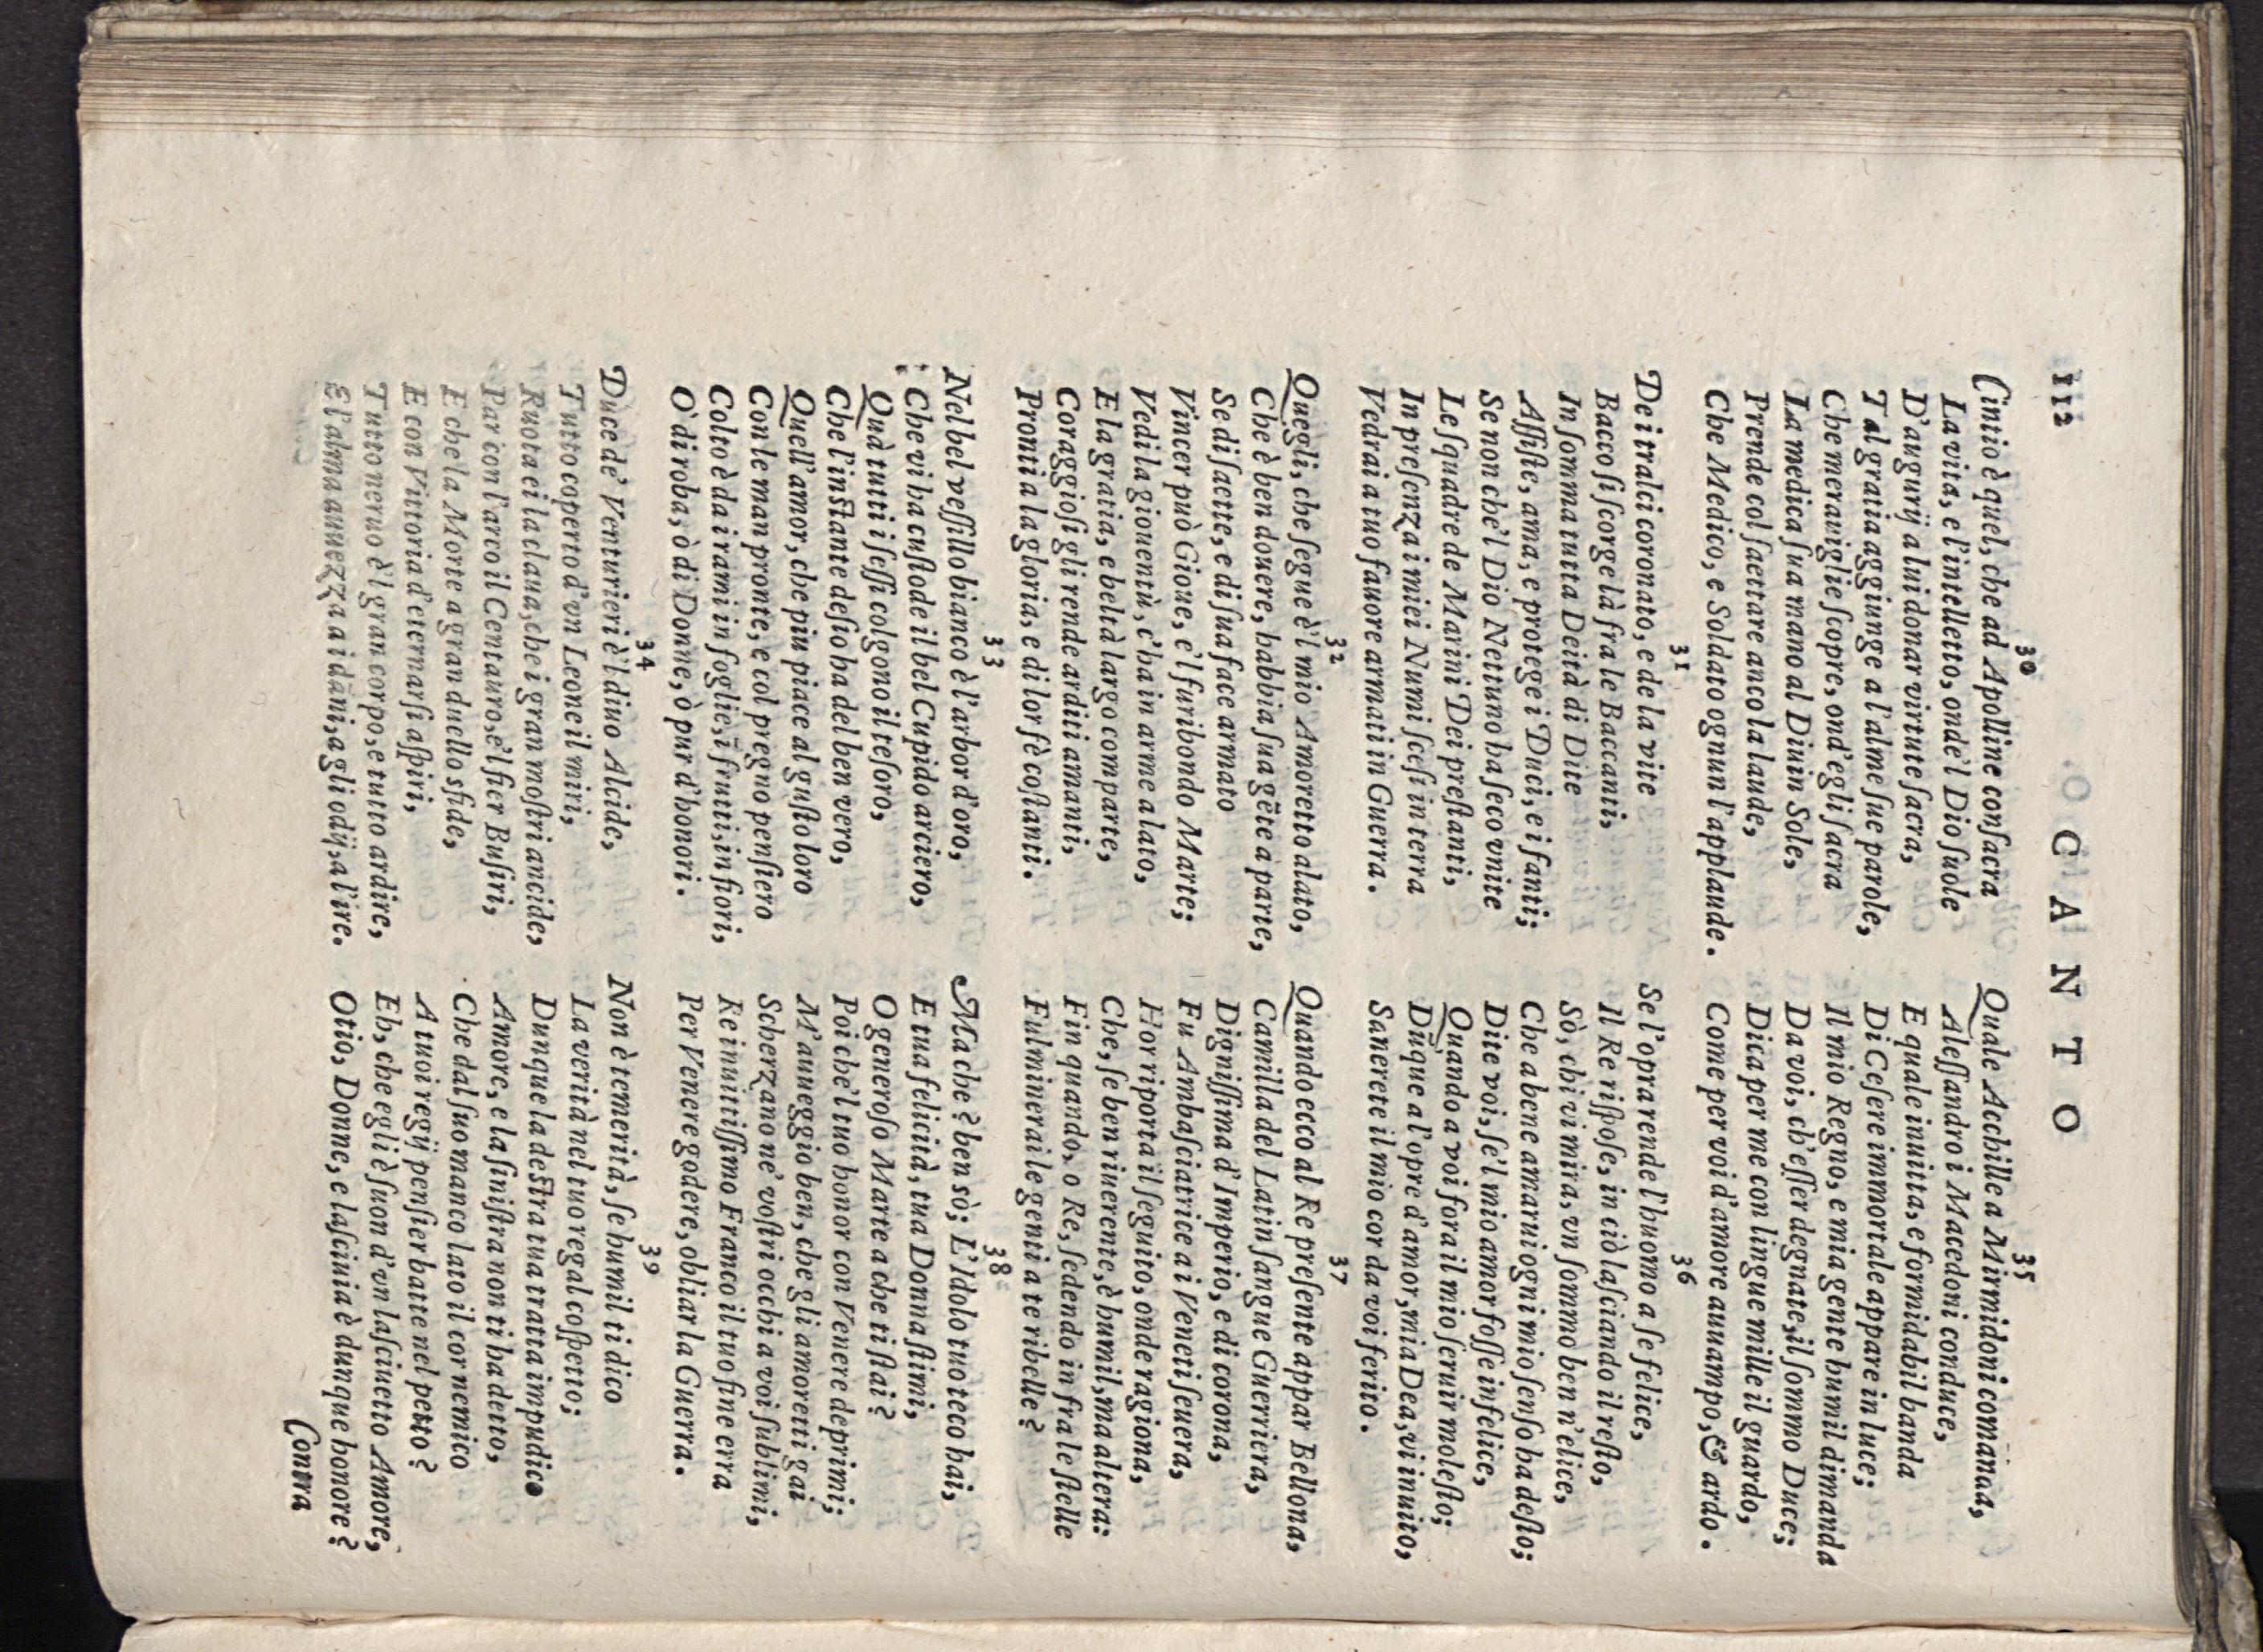 112 CANTO
30
Cintio è quel, che ad Apolline conſacra
La vita, e l'intelletto, onde'l Dio ſuole
D'augurÿ a lui donar virtute ſacra,
Tal gratia aggiunge a l'alme ſue parole,
Che merauiglie ſcopre, ond'egli ſacra
La medica ſua mano al Diuin Sole,
Prende col ſaettare anco la laude,
Che Medico, e Soldato ognun l'applaude.
31
De i tralci coronato, e de la vite
Bacco ſi ſcorge là fra le Baccanti,
In ſomma tutta Deità di Dite
Aſſiſte, ama, e protege i Duci, e i fanti;
Se non che'l Dio Nettuno ha ſeco vnite
Le ſquadre de Marini Dei preſtanti,
In preſenza i miei Numi ſceſi in terra
Vedrai a tuo fauore armati in Guerra.
32
Quegli, che ſegue è'l mio Amoretto alato,
Che è ben douere, habbia ſua gẽte a parte,
Se di ſaette, e di ſua face armato
Vincer può Gioue, e'l furibondo Marte;
Vedi la giouentù, c'ha in arme a lato,
E la gratia, e beltà largo comparte,
Coraggioſi gli rende arditi amanti,
Pronti a la gloria, e di lor fè coſtanti.
33
Nel bel veſſillo bianco è l'arbor d'oro,
Che vi ha cuſtode il bel Cupido arciero,
Quà tutti i ſeſſi colgono il teſoro,
Che l'inſtante deſio ha del ben vero,
Quell'amor, che piu piace al guſto loro
Con le man pronte, e col pregno penſiero
Colto è da i rami in foglie, ĩ frutti, in fiori,
O di roba, ò di Donne, ò pur d'honori.
34
Duce de' Venturieri è'l diuo Alcide,
Tutto coperto d'vn Leone il miri,
Ruota ei la claua, che i gran moſtri ancide,
Par con l'arco il Centauro, e'l fier Buſiri,
E che la Morte a gran duello sfide,
E con Vittoria d'eternarſi aſpiri,
Tutto neruo è'l gran corpo, e tutto ardire,
E l'alma auuezza a i dãni, a gli odÿ, a l'ire.
35
Quale Achille a Mirmidoni comãnda,
Aleſſandro i Macedoni conduce,
E quale inuitta, e formidabil banda
Di Ceſere immortale appare in luce;
Il mio Regno, e mia gente humil dimanda
Da voi, ch'eſſer degnate, il ſommo Duce;
Dica per me con lingue mille il guardo,
Come per voi d'amore auuampo, & ardo.
36
Se l'oprar rende l'huomo a ſe felice,
Il Re riſpoſe, in ciò laſciando il reſto,
Sò, chi vi mira, vn ſommo ben n'elice,
Che a bene amarui ogni mio ſenſo ha deſto;
Dite voi, ſe'l mio amor foſſe infelice,
Quando a voi fora il mio ſeruir moleſto;
Dũque a l'opre d'amor, mia Dea, vi inuito,
Sanerete il mio cor da voi ferito.
37
Quando ecco al Re preſente appar Bellona,
Camilla del Latin ſangue Guerriera,
Digniſſima d'Imperio, e di corona,
Fu Ambaſciatrice a i Veneti ſeuera,
Hor riporta il ſeguito, onde ragiona,
Che, ſe ben riuerente, è humil, ma altera:
Fin quando, o Re, ſedendo in fra le ſtelle
Fulminerai le genti a te ribelle?
38
Ma che? ben sò; L'Idolo tuo teco hai,
E tua felicità, tua Donna ſtimi,
O generoſo Marte a che ti ſtai?
Poi che'l tuo honor con Venere deprimi;
M'auueggio ben, che gli amoretti gai
Scherzano ne' voſtri occhi a voi ſublimi,
Re inuittiſſimo Franco il tuo fine erra
Per Venere godere, obliar la Guerra.
39
Non è temerità, ſe humil ti dico
La verità nel tuo regal coſpetto;
Dunque la deſtra tua tratta impudico
Amore, e la ſiniſtra non ti ha detto,
Che dal ſuo manco lato il cor nemico
A tuoi regÿ penſier batte nel petto?
Eh, che egli è ſuon d'vn laſciuetto Amore,
Otio, Donne, e laſciuia è dunque honore?
Contra